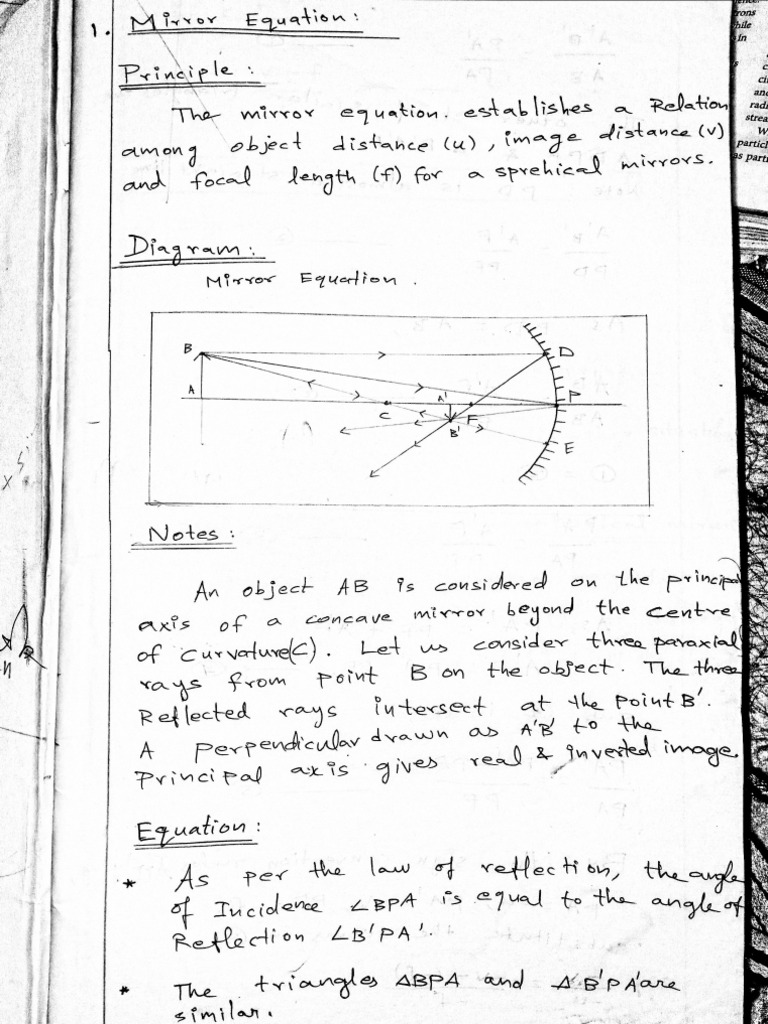 1. Mirror Equation:
Principle:
The mirror equation. establishes a Relation
among object distance (u), image distance (v)
and focal length (f) for a sprehical mirrors.
Diagram:
Mirror Equation.
B
D
A
A'
P
C
F
B'
E
Notes:
An object AB is considered on the principal
axis of a concave mirror beyond the centre
of curvature(C). Let us consider three paraxial
rays from point B on the object. The three
Reflected rays intersect at the point B'.
A perpendicular drawn as A'B' to the
Principal axis gives real & inverted image.
Equation:
* As per the law of reflection, the angle
of Incidence ∠BPA is equal to the angle of
Reflection ∠B'PA'.
* The triangles ΔBPA and ΔB'PA' are
similar.
rons
hile
in
c
and
radi
strea
W
particl
as parti